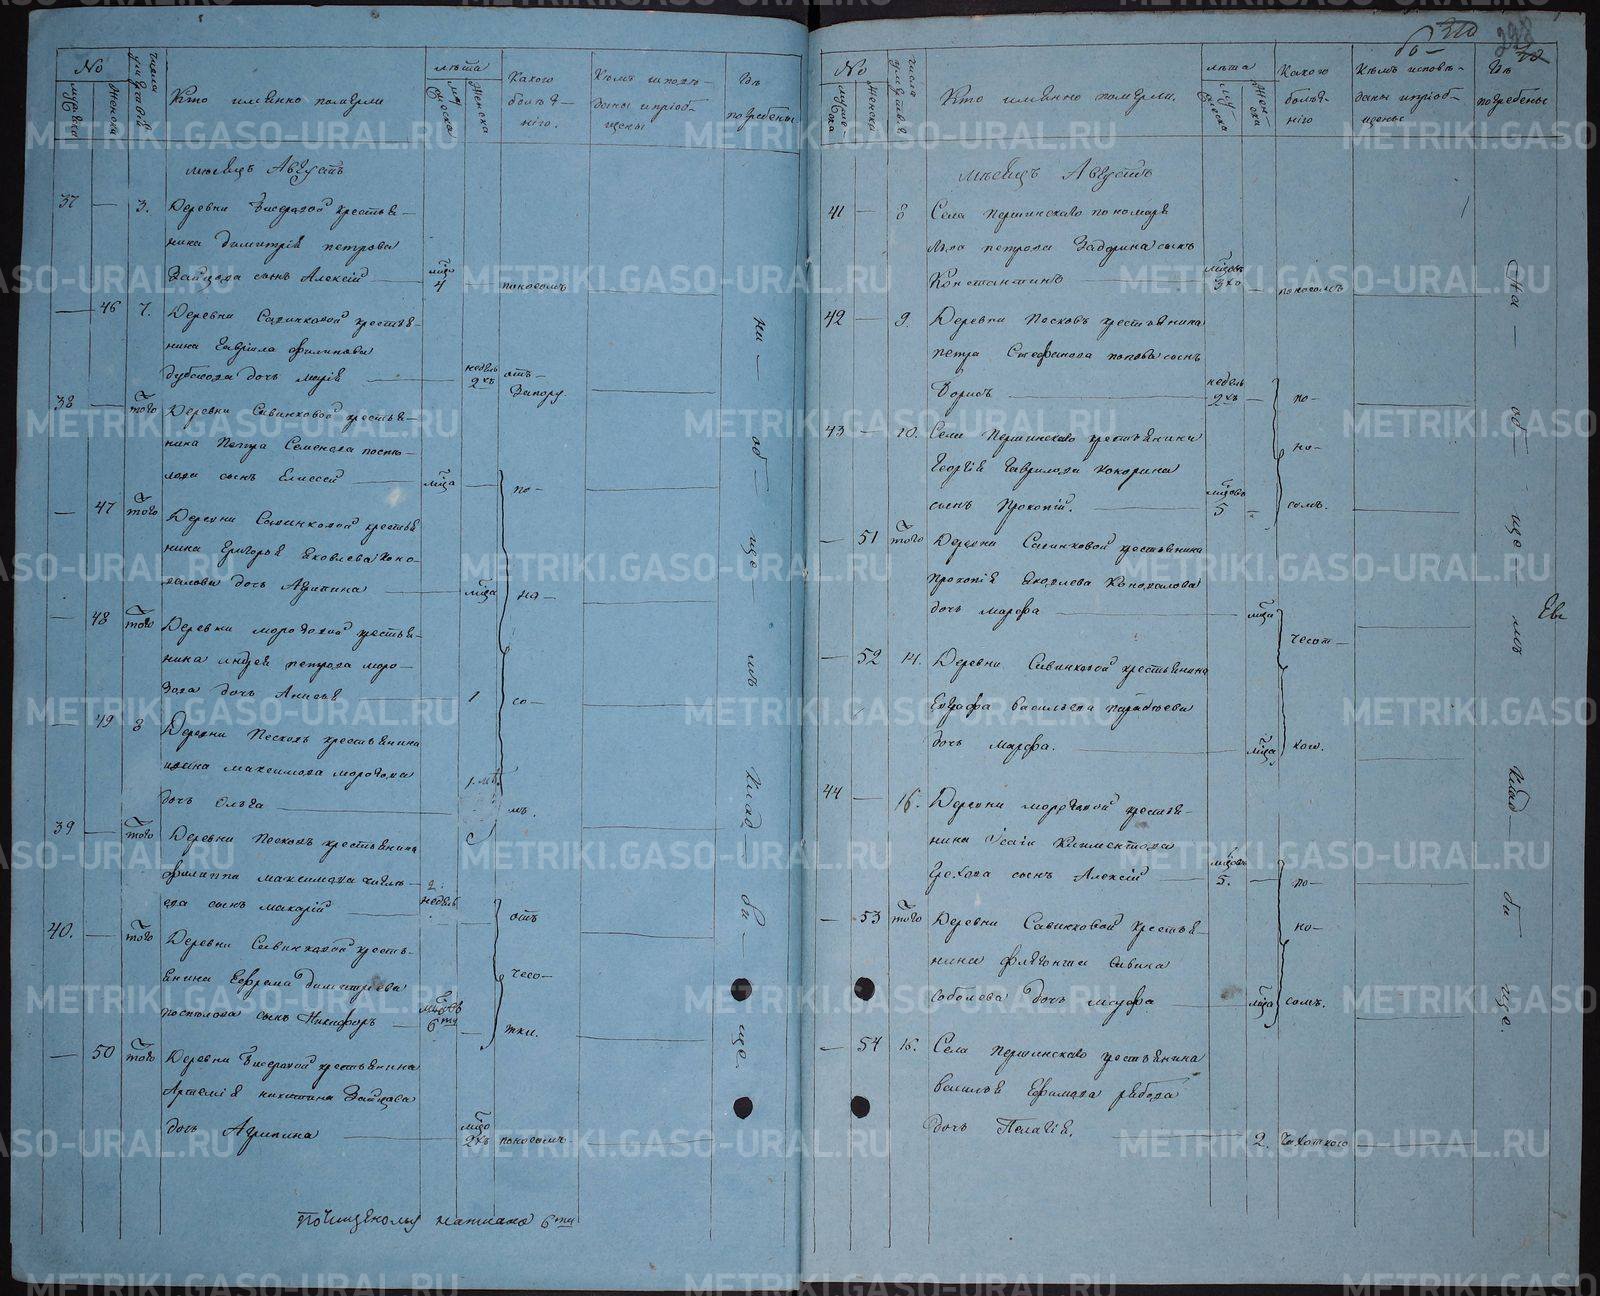 No
мужска
женска
числа умертвій
Кто имянно померли
лѣта
мужска
женска
Какого болѣз-
ніго.
Кѣмъ исповѣ-
даны и пріоб-
щены
Гдѣ
погребены
мѣсецъ Августъ
37 — 3. Деревни крестья-
нина Димитрія петрова
Зайцова сынъ Алексій 4 поносомъ
— 46 7. Деревни Савинковой крестья-
нина Гавріила Филипова
дочь марія недель 2хъ отъ-
Запору
38 — того Деревни Савинковой крестья-
нина Петра Семенова посто-
лова сынъ Елисей міца
по-
— 47 того Деревни Савинковой крестья-
нина Григорья Яковлева Коно-
валова дочь Агрипина міца
но-
— 48 того Деревни морозовой крестья-
нина Андрея петрова моро-
зова дочь Анисья 1
со-
— 49 8 Деревни Песковъ крестьянина
ивана максимова морозова
дочь Ольга
мъ.
39 — того Деревни Песковъ крестьянина
филиппа максимова
сынъ макарій 2. недель
отъ
40. — того Деревни Савинковой кресть-
янина Ефрема Димитріева
постолова сынъ Никифоръ 6ти
чесо-
тки.
— 50 того Деревни крестьянина
Артемія никитина Зайцова
дочь Агрипина 2хъ поносомъ
на — об — ще — мъ клад — би — ще.
написано 6ти
310
298
No
мужеска
женска
числа
Кто имянно померли.
лѣта
мужска
женска
Какого
болѣз-
ніго
Кѣмъ исповѣ-
даны и пріоб-
щены
Гдѣ
погребены
мѣсецъ Августъ
41 — 8 Села першинскаго пономаря
льва петрова Задорина сынъ
Константинъ 3хъ поносомъ
42 — 9. Деревни Песковъ крестьянина
петра Стефанова попова сынъ
Борисъ недель 2хъ
по-
43 — 10. Села Першинскаго крестьянина
Георгія Гаврилова кокорина
сынъ Прокопій. 5
но-
сомъ.
— 51 того Деревни Савинковой крестьянина
Прокопія Яковлева Коновалова
дочь марфа міца
чесот-
— 52 14. Деревни Савинковой крестьянина
Евграфа васильева
дочь марфа. міца
кою.
44 — 16. Деревни морозовой крестья-
нина Исаіи Климентова
Грехова сынъ Алексій 5.
по-
— 53 того Деревни Савинковой крестья-
нина флегонта Савина
соболева дочь марфа міца
но-
сомъ.
— 54 16. Села першинскаго крестьянина
василья Ефимова рябова
дочь Пелагія. 2. чахоткою
На — об — ще — мъ клад — би — ще.
METRIKI.GASO-URAL.RU